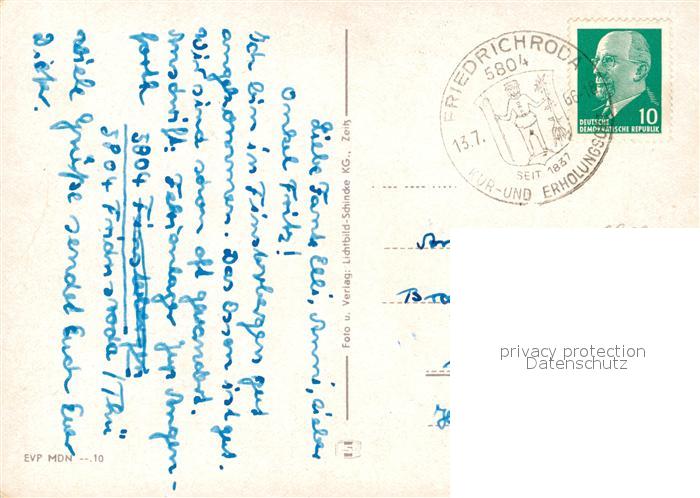 Liebe Tante Elli, Anni, lieber
Onkel Fritz!
Ich bin in Finsterbergen gut
angekommen. Das Essen ist gut.
Wir sind schon oft gewandert.
Anschrift: Ferienlager
5804
5804 Friedrichroda / Thür
viele Grüße sendet Euch Euer
EVP MDN --.10
Foto u. Verlag: Lichtbild-Schincke KG., Zeitz
FRIEDRICHRODA
5804
13.7.
66
SEIT 1837
KUR-UND ERHOLUNGSORT
10
DEUTSCHE
DEMOKRATISCHE REPUBLIK
privacy protection
Datenschutz